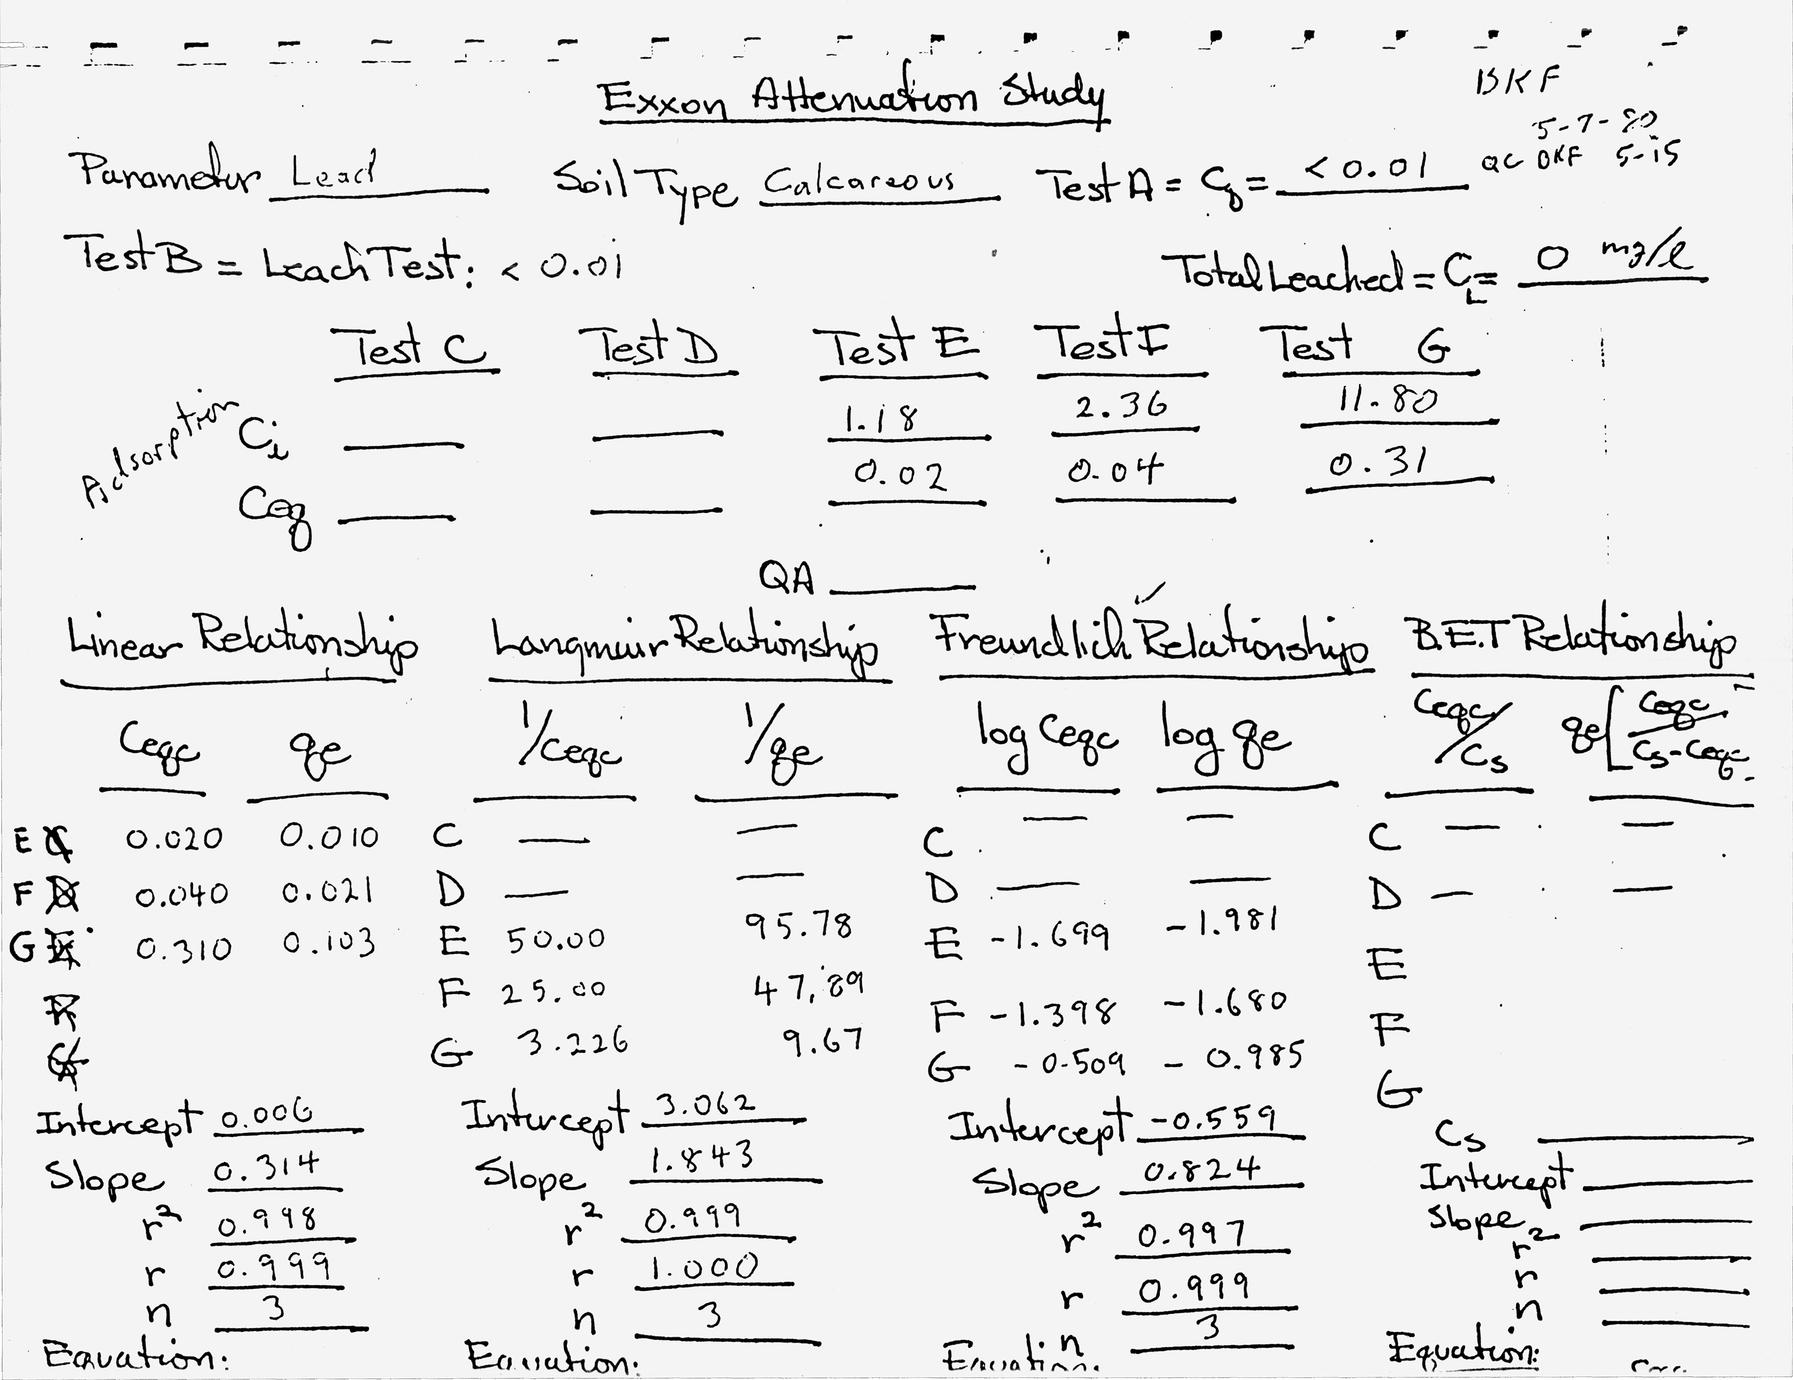 Exxon Attenuation Study
BKF
5-7-80
QC BKF 5-15
Parameter Lead Soil Type Calcareous Test A = Cb = <0.01
Test B = Leach Test: < 0.01 Total Leached = CL = 0 mg/l
Test C Test D Test E Test F Test G
Adsorption
Ci 1.18 2.36 11.80
Ceq 0.02 0.04 0.31
QA
Linear Relationship Langmuir Relationship Freundlich ✓ Relationship B.E.T Relationship
Ceqc qe 1/Ceqc 1/qe log Ceqc log qe Ceqc/Cs qe[Ceqc/Cs-Ceqc]
E C 0.020 0.010 C — — C — — C — —
F D 0.040 0.021 D — — D — — D — —
G E 0.310 0.103 E 50.00 95.78 E -1.699 -1.981 E
F F 25.00 47.89 F -1.398 -1.680 F
G G 3.226 9.67 G -0.509 -0.985 G
Intercept 0.006 Intercept 3.062 Intercept -0.559 Cs
Slope 0.314 Slope 1.843 Slope 0.824 Intercept
r² 0.998 r² 0.999 r² 0.997 Slope
r 0.999 r 1.000 r 0.999 r²
n 3 n 3 n 3 r
n
Equation: Equation: Equation: Equation: